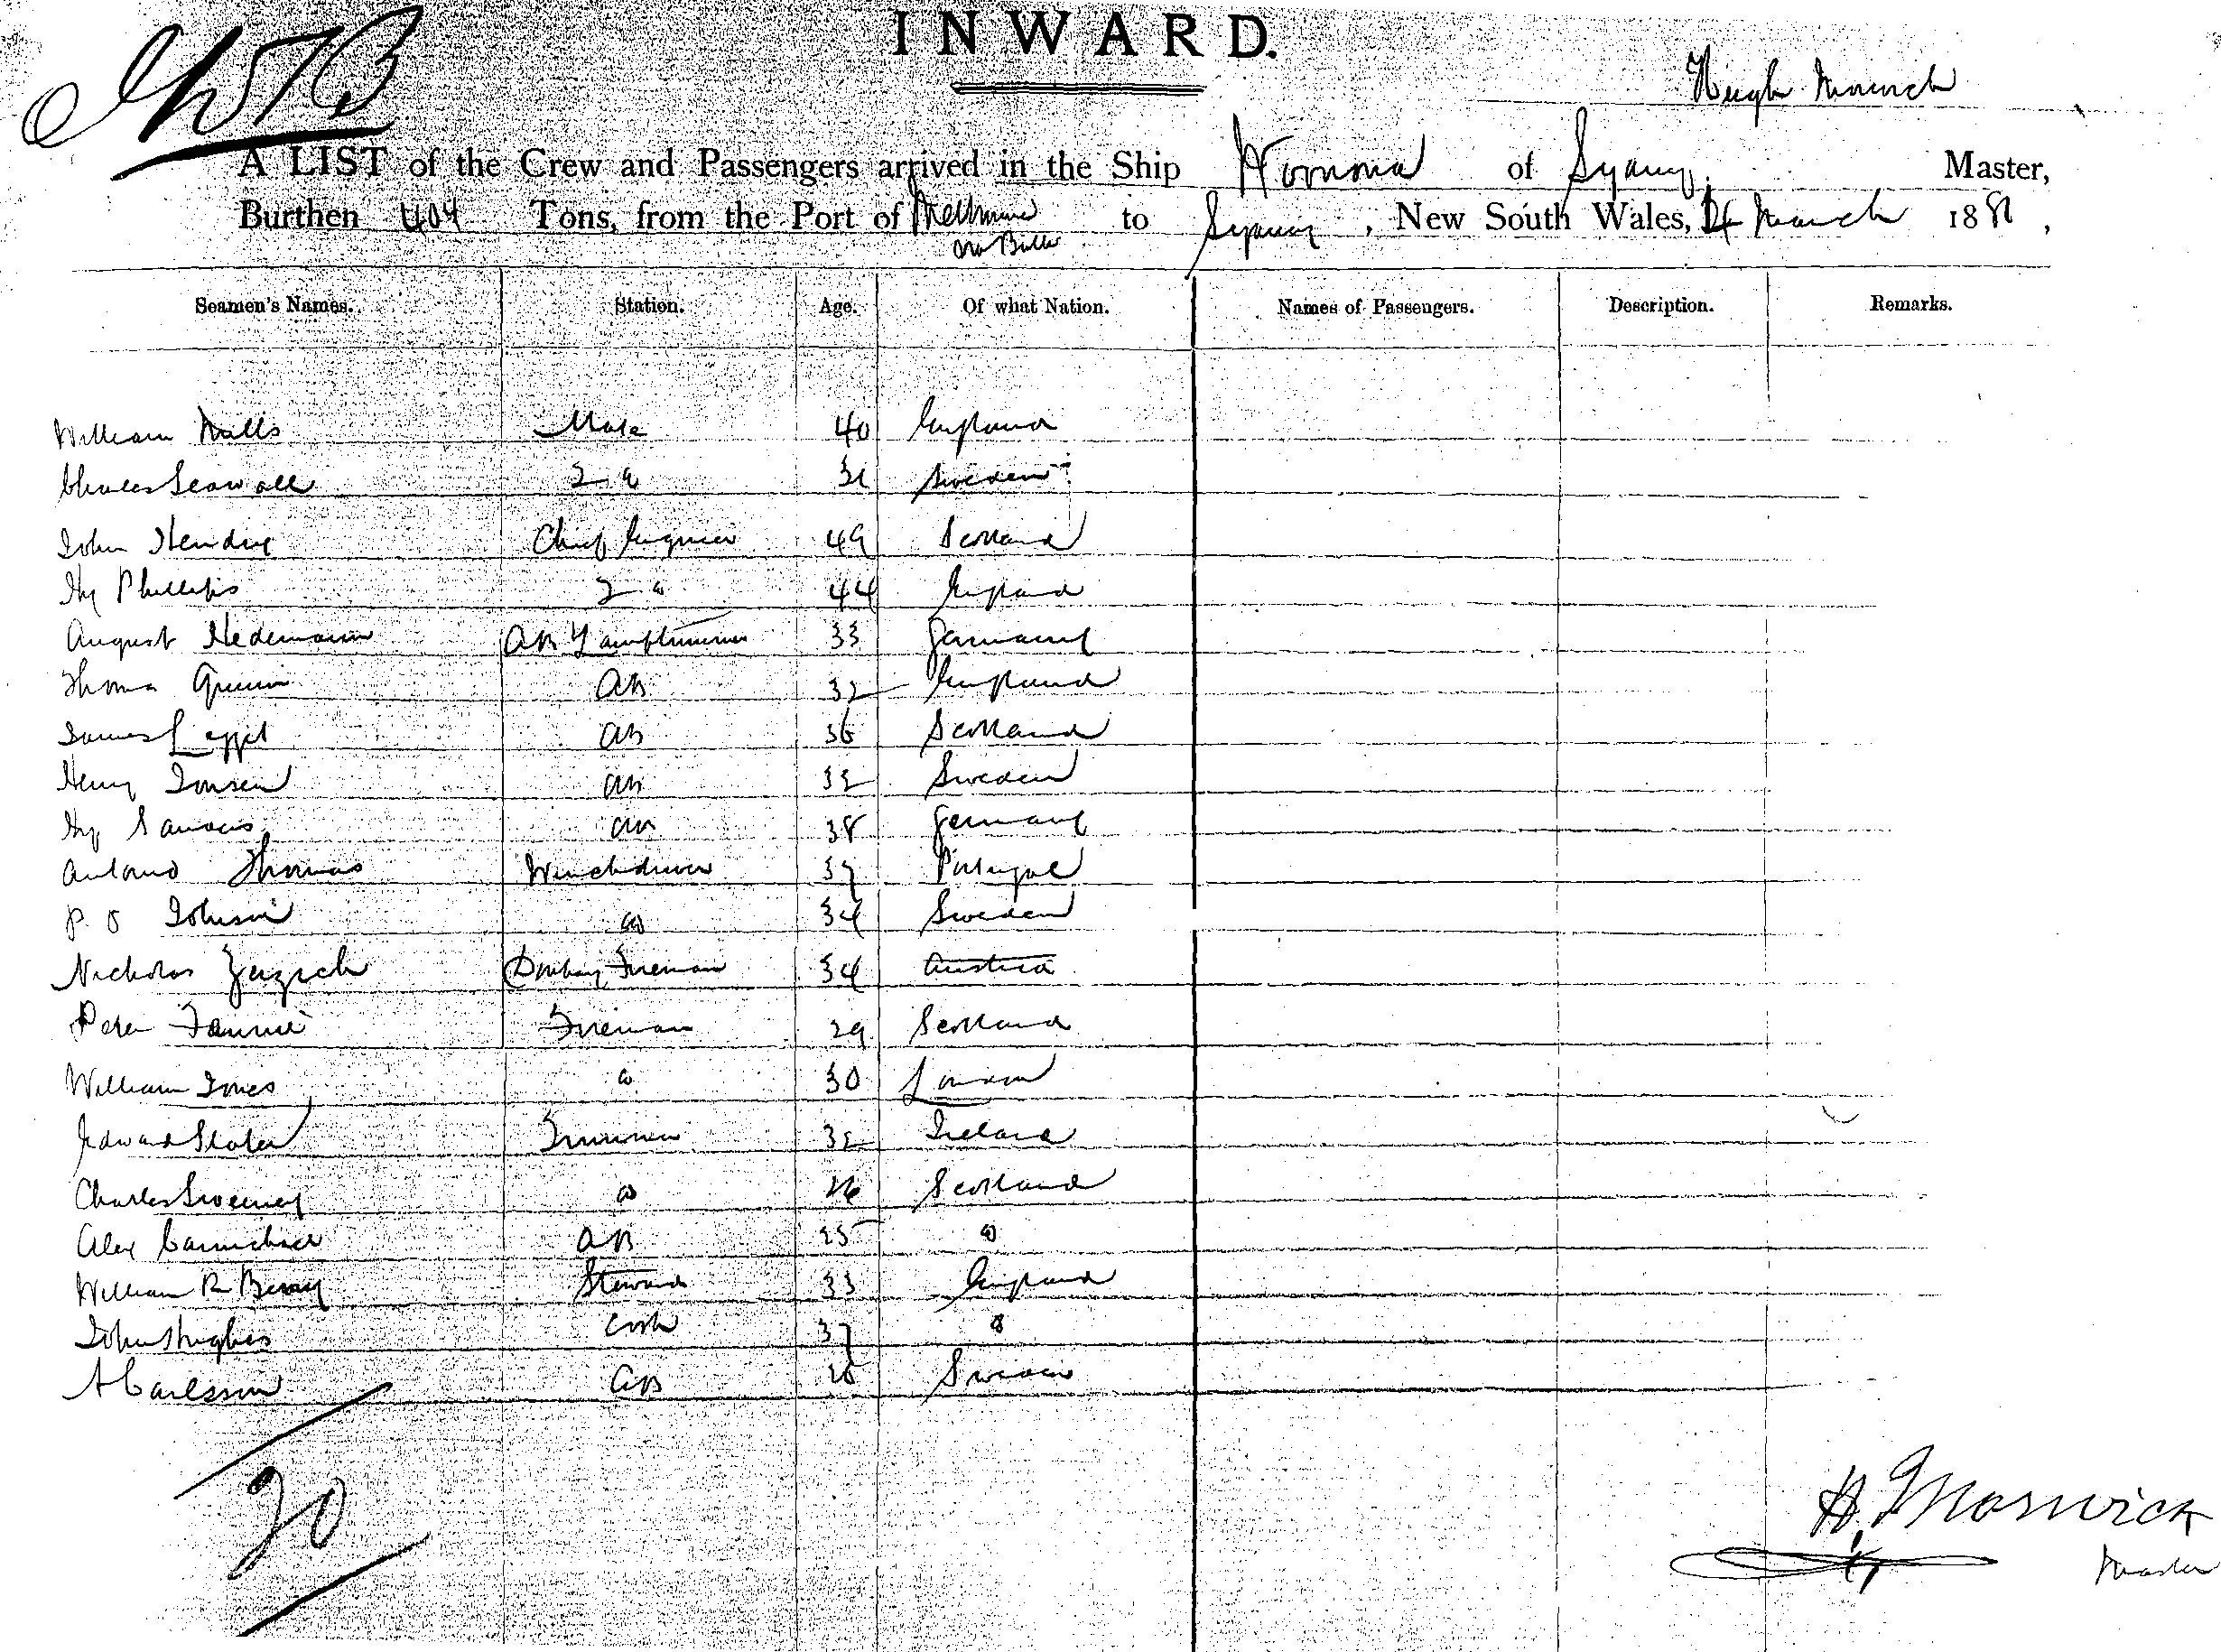 INWARD.
Hugh
A LIST of the Crew and Passengers arrived in the Ship of Sydney Master,
Burthen 404 Tons, from the Port of Melbourne to Sydney, New South Wales, 24 March 188
Seamen's Names. Station. Age. Of what Nation. Names of Passengers. Description. Remarks.
William Mills Mate 40 England
Charles 2 Do Sweden
John Hendry Chief Engineer 49 Scotland
Hy Phillips 2 Do 44 England
August Hedemann AB Lamptrimmer 33 Germany
Thomas AB 32 England
James AB 36 Scotland
Henry Jonsen AB 32 Sweden
Hy AB 38 Germany
Antonio Thomas Winchdriver 37 Portugal
P. O Johnson Do 34 Sweden
Nicholas Donkey Fireman 34 Austria
Peter Fireman 29 Scotland
William Jones Do 30 London
Edward Slater Trimmer 32 Ireland
Charles Sweeney Do 26 Scotland
Alex Carmichael AB 25 Do
William R Berry Steward 33 England
John Hughes Cook 37 Do
A Carlsson AB Sweden
20
H. Morwick
Master